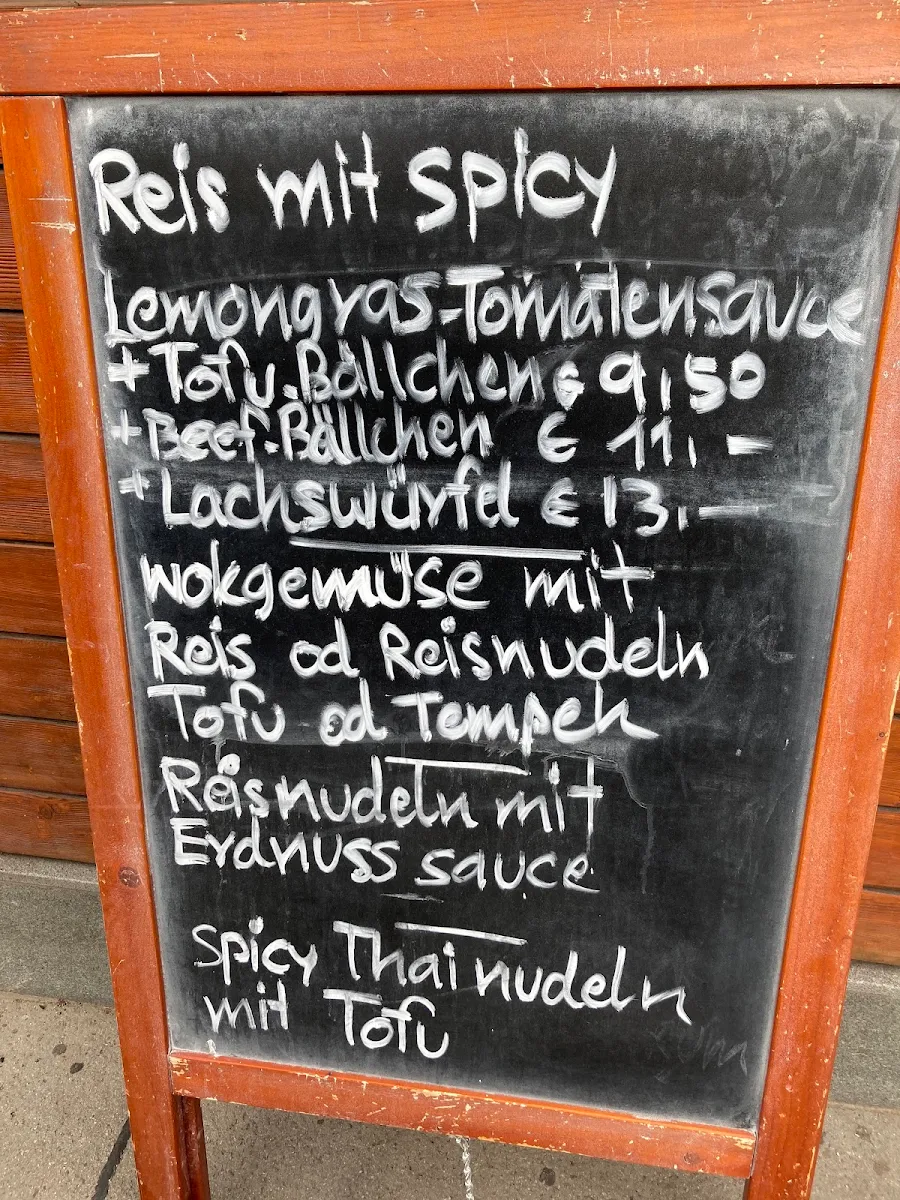 Reis mit spicy
Lemongras-Tomatensauce
+ Tofu-Bällchen € 9,50
+ Beef-Bällchen € 11,-
+ Lachswürfel € 13,-
wokgemüse mit
Reis od Reisnudeln
Tofu od Tempeh
Reisnudeln mit
Erdnuss sauce
spicy Thai nudeln
mit Tofu